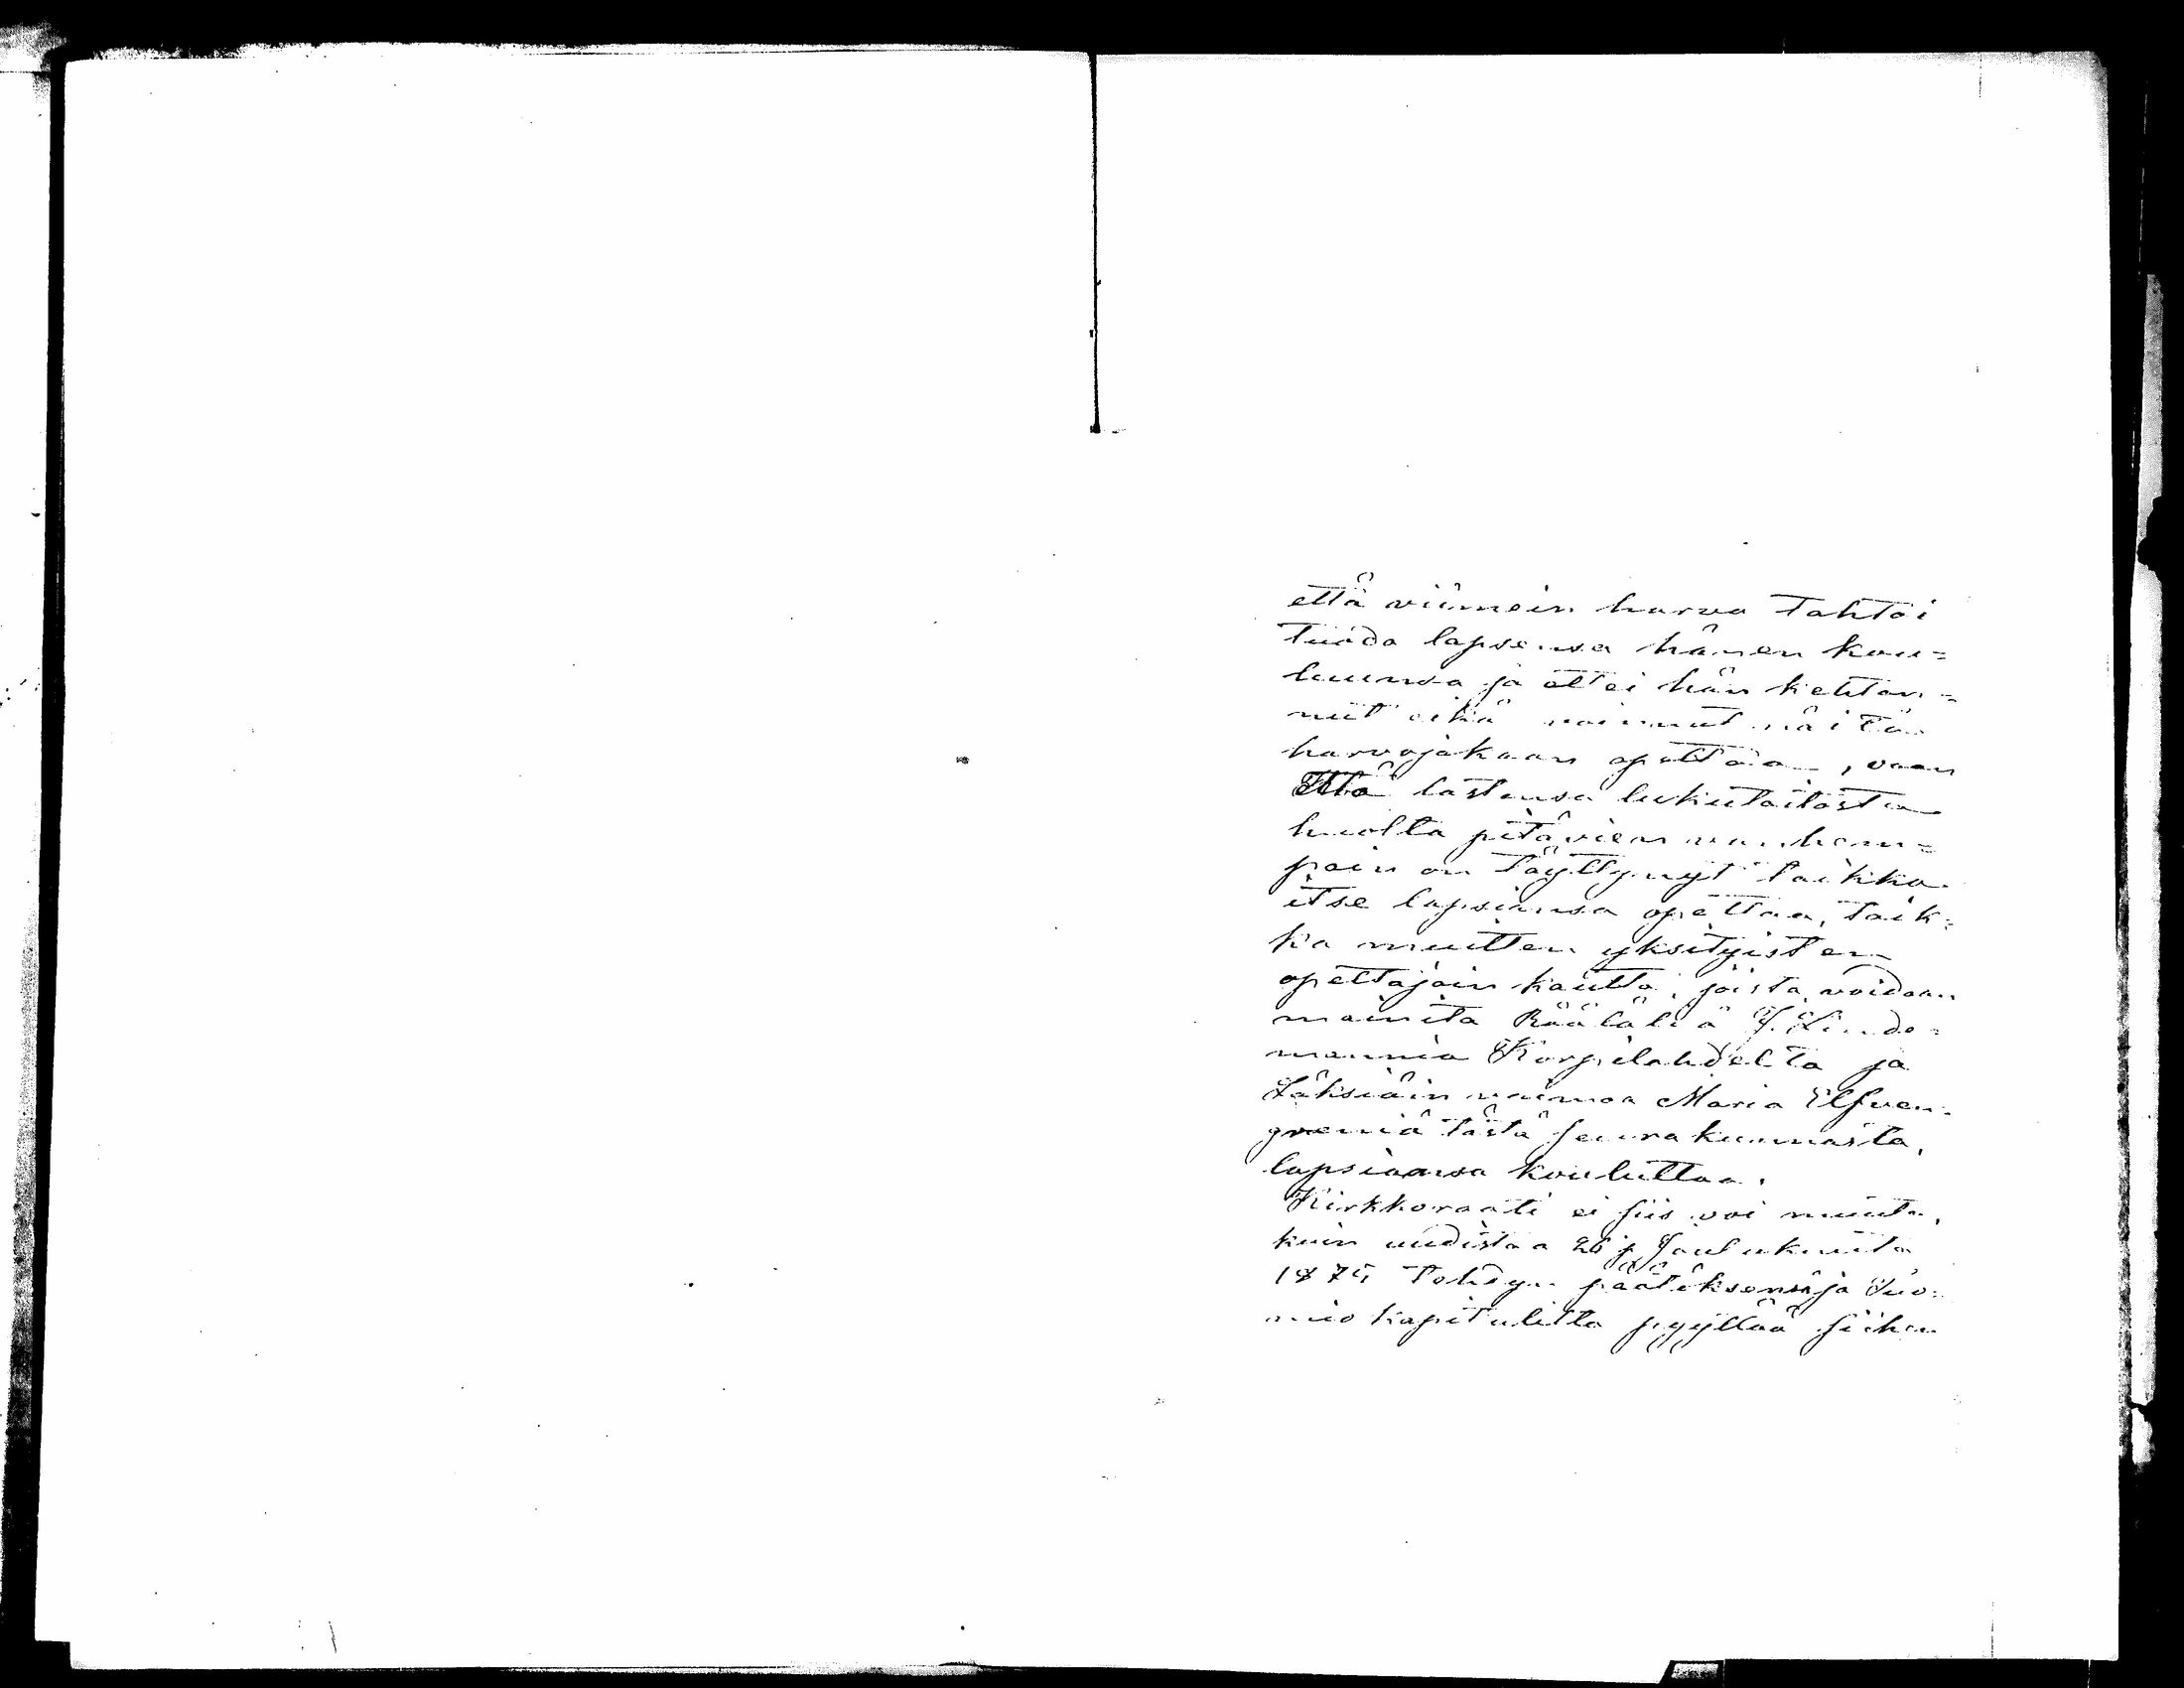 että viimein harva tahtoi
tuoda lapsensa hänen kou=
luunsa ja ettei hän kehtan=
nut eikä voinnut näitä
harvojakaan opettaa, vaan
että lastensa lukutaitosta
huolta pitävien vanhem=
pain on täyttynyt taikka
itse lapsiansa opettaa, taik=
ka muitten yksityisten
opettajain kautta, joista voidaan
mainita Räätäliä J. Linde=
mannia Korpilahdelta ja
Läksiäin vaimoa Maria Elfven=
greniä tästä seurakunnasta,
lapsiaansa kouluttaa.
Kirkkoraati ei siis voi muuta,
kuin uudistaa 26 p Joulukuuta
1875 tehdyn päätöksensä ja Tuo=
mio kapitulilta pyytää siihen